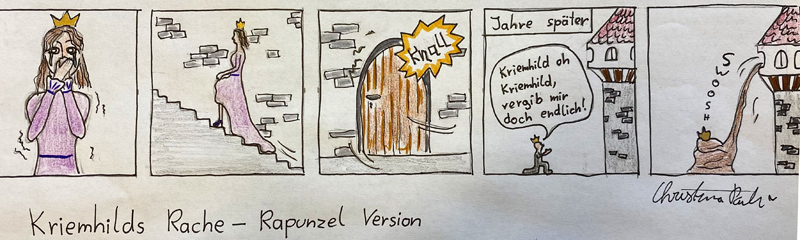 Knall
Jahre später
Kriemhild oh
Kriemhild,
vergib mir
doch endlich!
SWOOSH
Kriemhilds Rache – Rapunzel Version
Christina